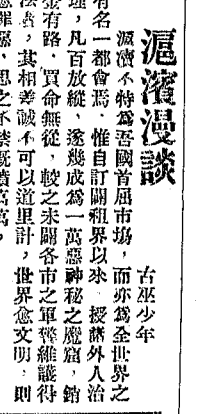 滬濱漫談
古巫少年
滬濱不特爲吾國首屈市場，而亦爲全世界之
有名一都會焉，惟自訂闢租界以來，授諸外人治
理，凡百放縱，遂幾成爲一萬惡神秘之魔窟，銷
金有路，買命無從，較之未闢各市之軍警維護得
法者，其相差誠不可以道里計，世界愈文明，則
罪惡，思之不禁慨憤萬萬，